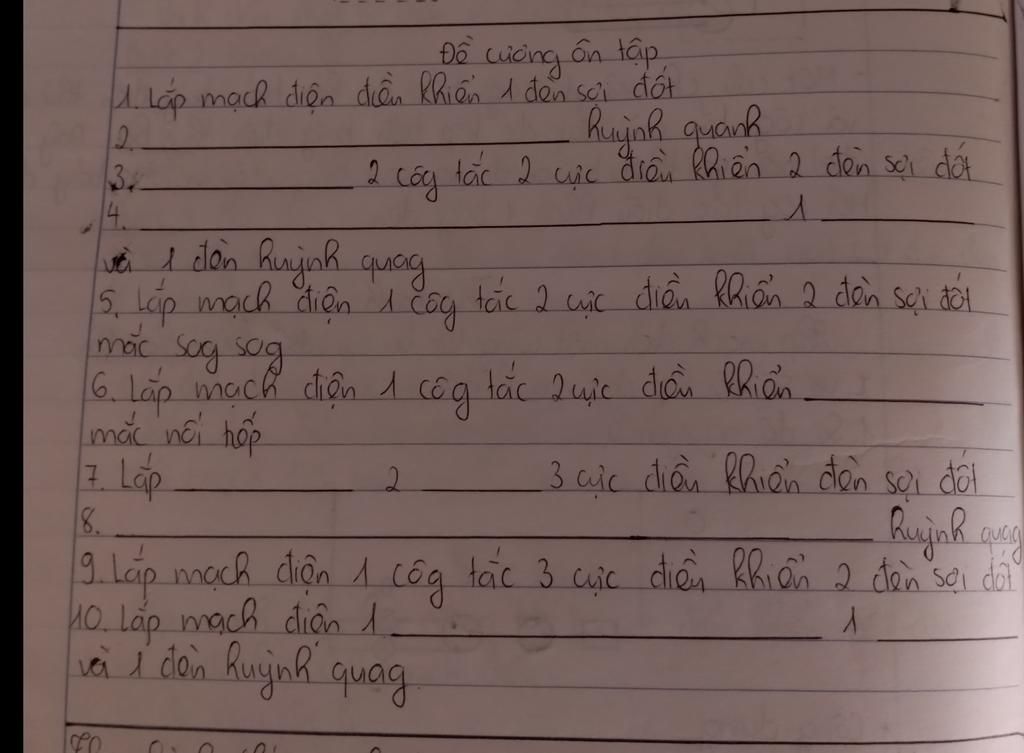 Đề cương ôn tập
1. Lắp mạch điện điều khiển 1 đèn sợi đốt
2. ____________ huỳnh quanh
3. ____________ 2 côg tắc 2 cực điều khiển 2 đèn sợi đốt
4. ____________ 1 ____________
và 1 đèn huỳnh quag
5. Lắp mạch điện 1 côg tắc 2 cực điều khiển 2 đèn sợi đốt
mắc sog sog
6. Lắp mạch điện 1 côg tắc 2 cực điều khiển ____________
mắc nối hốp
7. Lắp ____________ 2 ____________ 3 cực điều khiển đèn sợi đốt
8. ____________ huỳnh quag
9. Lắp mạch điện 1 côg tắc 3 cực điều khiển 2 đèn sợi đốt
10. Lắp mạch điện 1 ____________ 1 ____________
và 1 đèn huỳnh quag